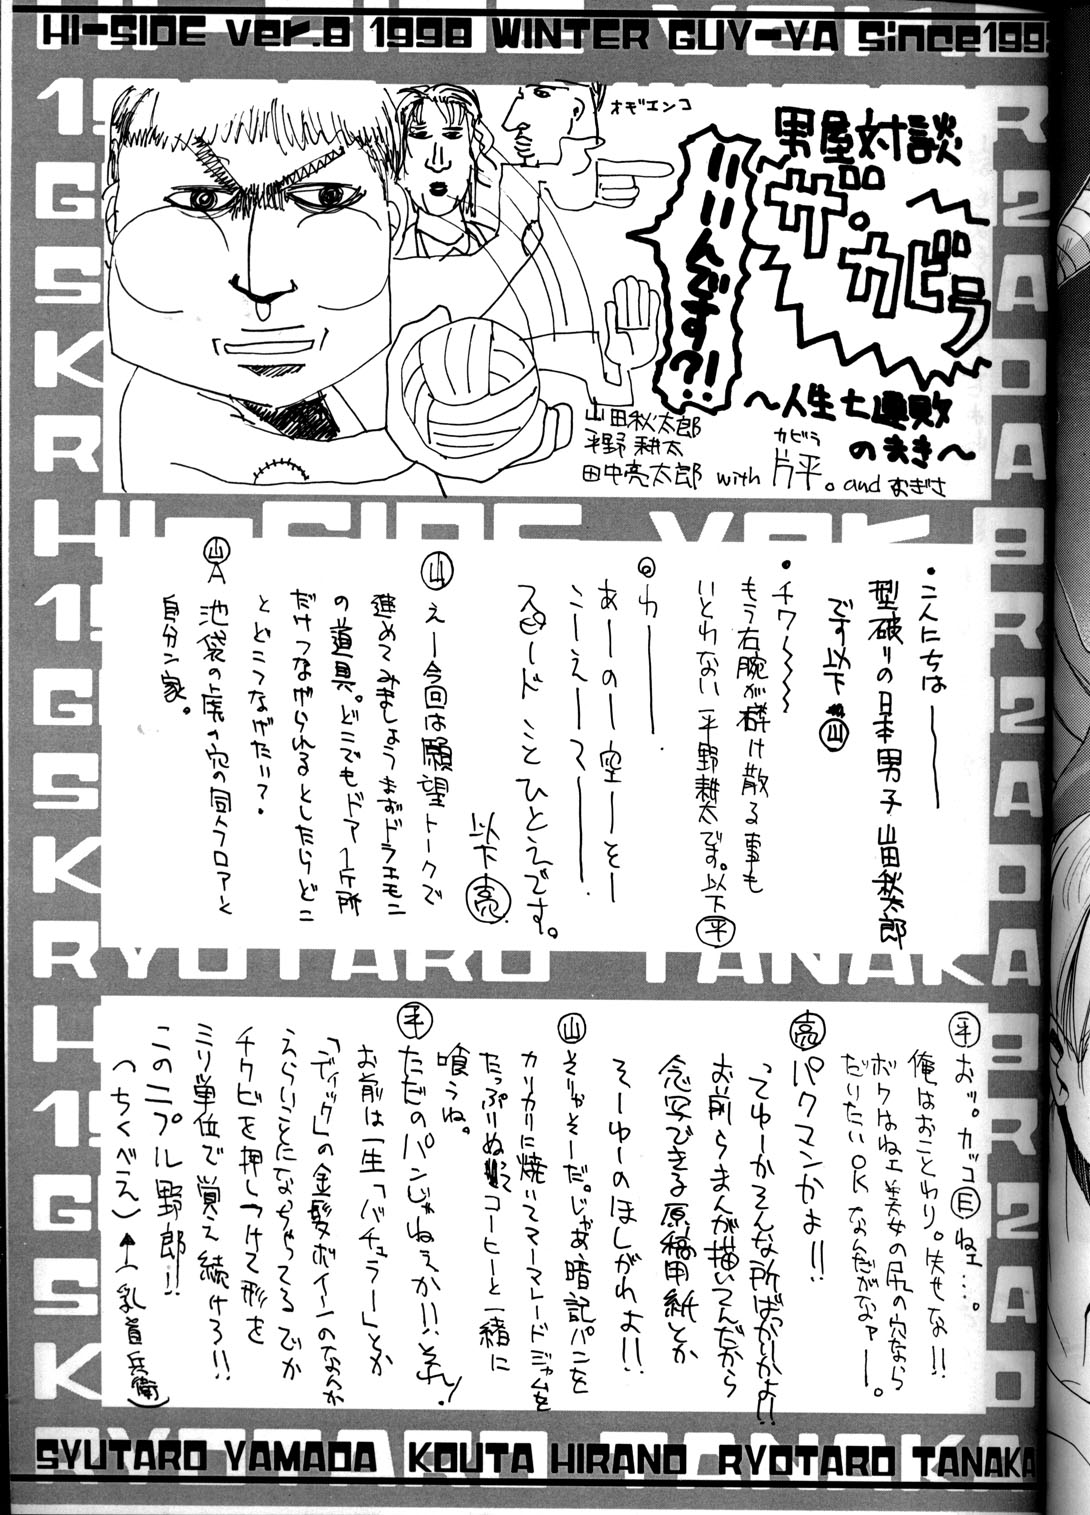 HI-SIDE ver.8 1998 WINTER GUY-YA Since199
男屋対談
ザ・カビラ
いいんです?!
オギエンコ
〜人生七連敗
の巻き〜
山田秋太郎
平野耕太
田中亮太郎 with 片平。and むぎさ
カビラ
・こんにちは――
型破りの日本男子山田秋太郎
です以下山
・チワ〜〜〜
もう右腕が砕け散る事も
いとわない平野耕太です。以下平
◎わ――.
あーのー空ーをー
こーえーて――.
スピードことひとえです。
以下亮
山 えー今回は願望トークで
進めてみましょうまずドラエモン
の道具。どこでもドア1ケ所
だけつなげられるとしたらどこ
とどこつなげたい?.
山A 池袋の虎の穴の同人フロアーと
自分ン家。
平 おッ。カッコ目ねェ…。
俺はおことわり。失せな!!
ボクはねェ美女の尻の穴なら
だいたいOKなんだがなァー。
亮 パクマンかよ!!
ってゆーかそんな所ばっかかよ!!
お前らまんが描いてんだから
念写できる原稿用紙とか
そーゆーのほしがれよ!!
山 そりゃそーだ。じゃあ、暗記パンを
カリカリに焼いてマーマレードジャムを
たっぷりぬってコーヒーと一緒に
喰うね。
平 ただのパンじゃねぇか!!、それ!
お前は一生「バチュラー」とか
「ディック」の金髪ボインのなんか
えらいことになっちゃってるでか
チクビを押しつけて形を
ミリ単位で覚え続けろ!!
このニプル野郎!!
(ちくべえ)←乳首兵衛)
SYUTARO YAMADA KOUTA HIRANO RYOTARO TANAKA